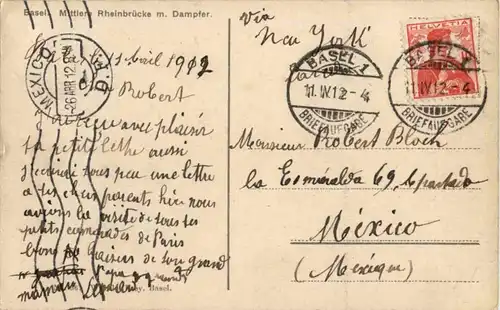 Basel. Mittlere Rheinbrücke m. Dampfer.
11 Avril 1912
Robert
avec plaisir
ta petite lettre aussi
une lettre
a tes chers parents hier nous
avions la visite de tous tes
petits camarades de Paris
bons baisers de ton grand
papa
maman
Basel.
MEXICO D.F.
26 ABR.12
via
New York
BASEL 1
11.IV.12-4
BRIEFAUFGABE
HELVETIA
BASEL 1
11.IV.12-4
BRIEFAUFGABE
Monsieur Robert Bloch
la Esméralda 69, Apartado
México
(Méxique)